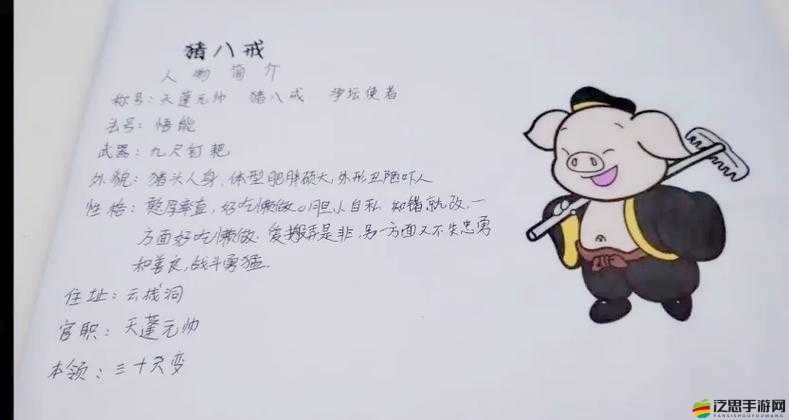 猪八戒
人物简介
称号：天蓬元帅 猪八戒 净坛使者
法号：悟能
武器：九尺钉耙
外貌：猪头人身、体型肥胖硕大，外形丑陋吓人
性格：憨厚率直，好吃懒做。胆小自私 知错就改，一
方面好吃懒做. 爱搬弄是非，另一方面又不失忠勇
和善良，战斗勇猛.
住址：云栈洞
官职：天蓬元帅
本领：三十六变
泛思手游网
FANSISHOUYOUWANG